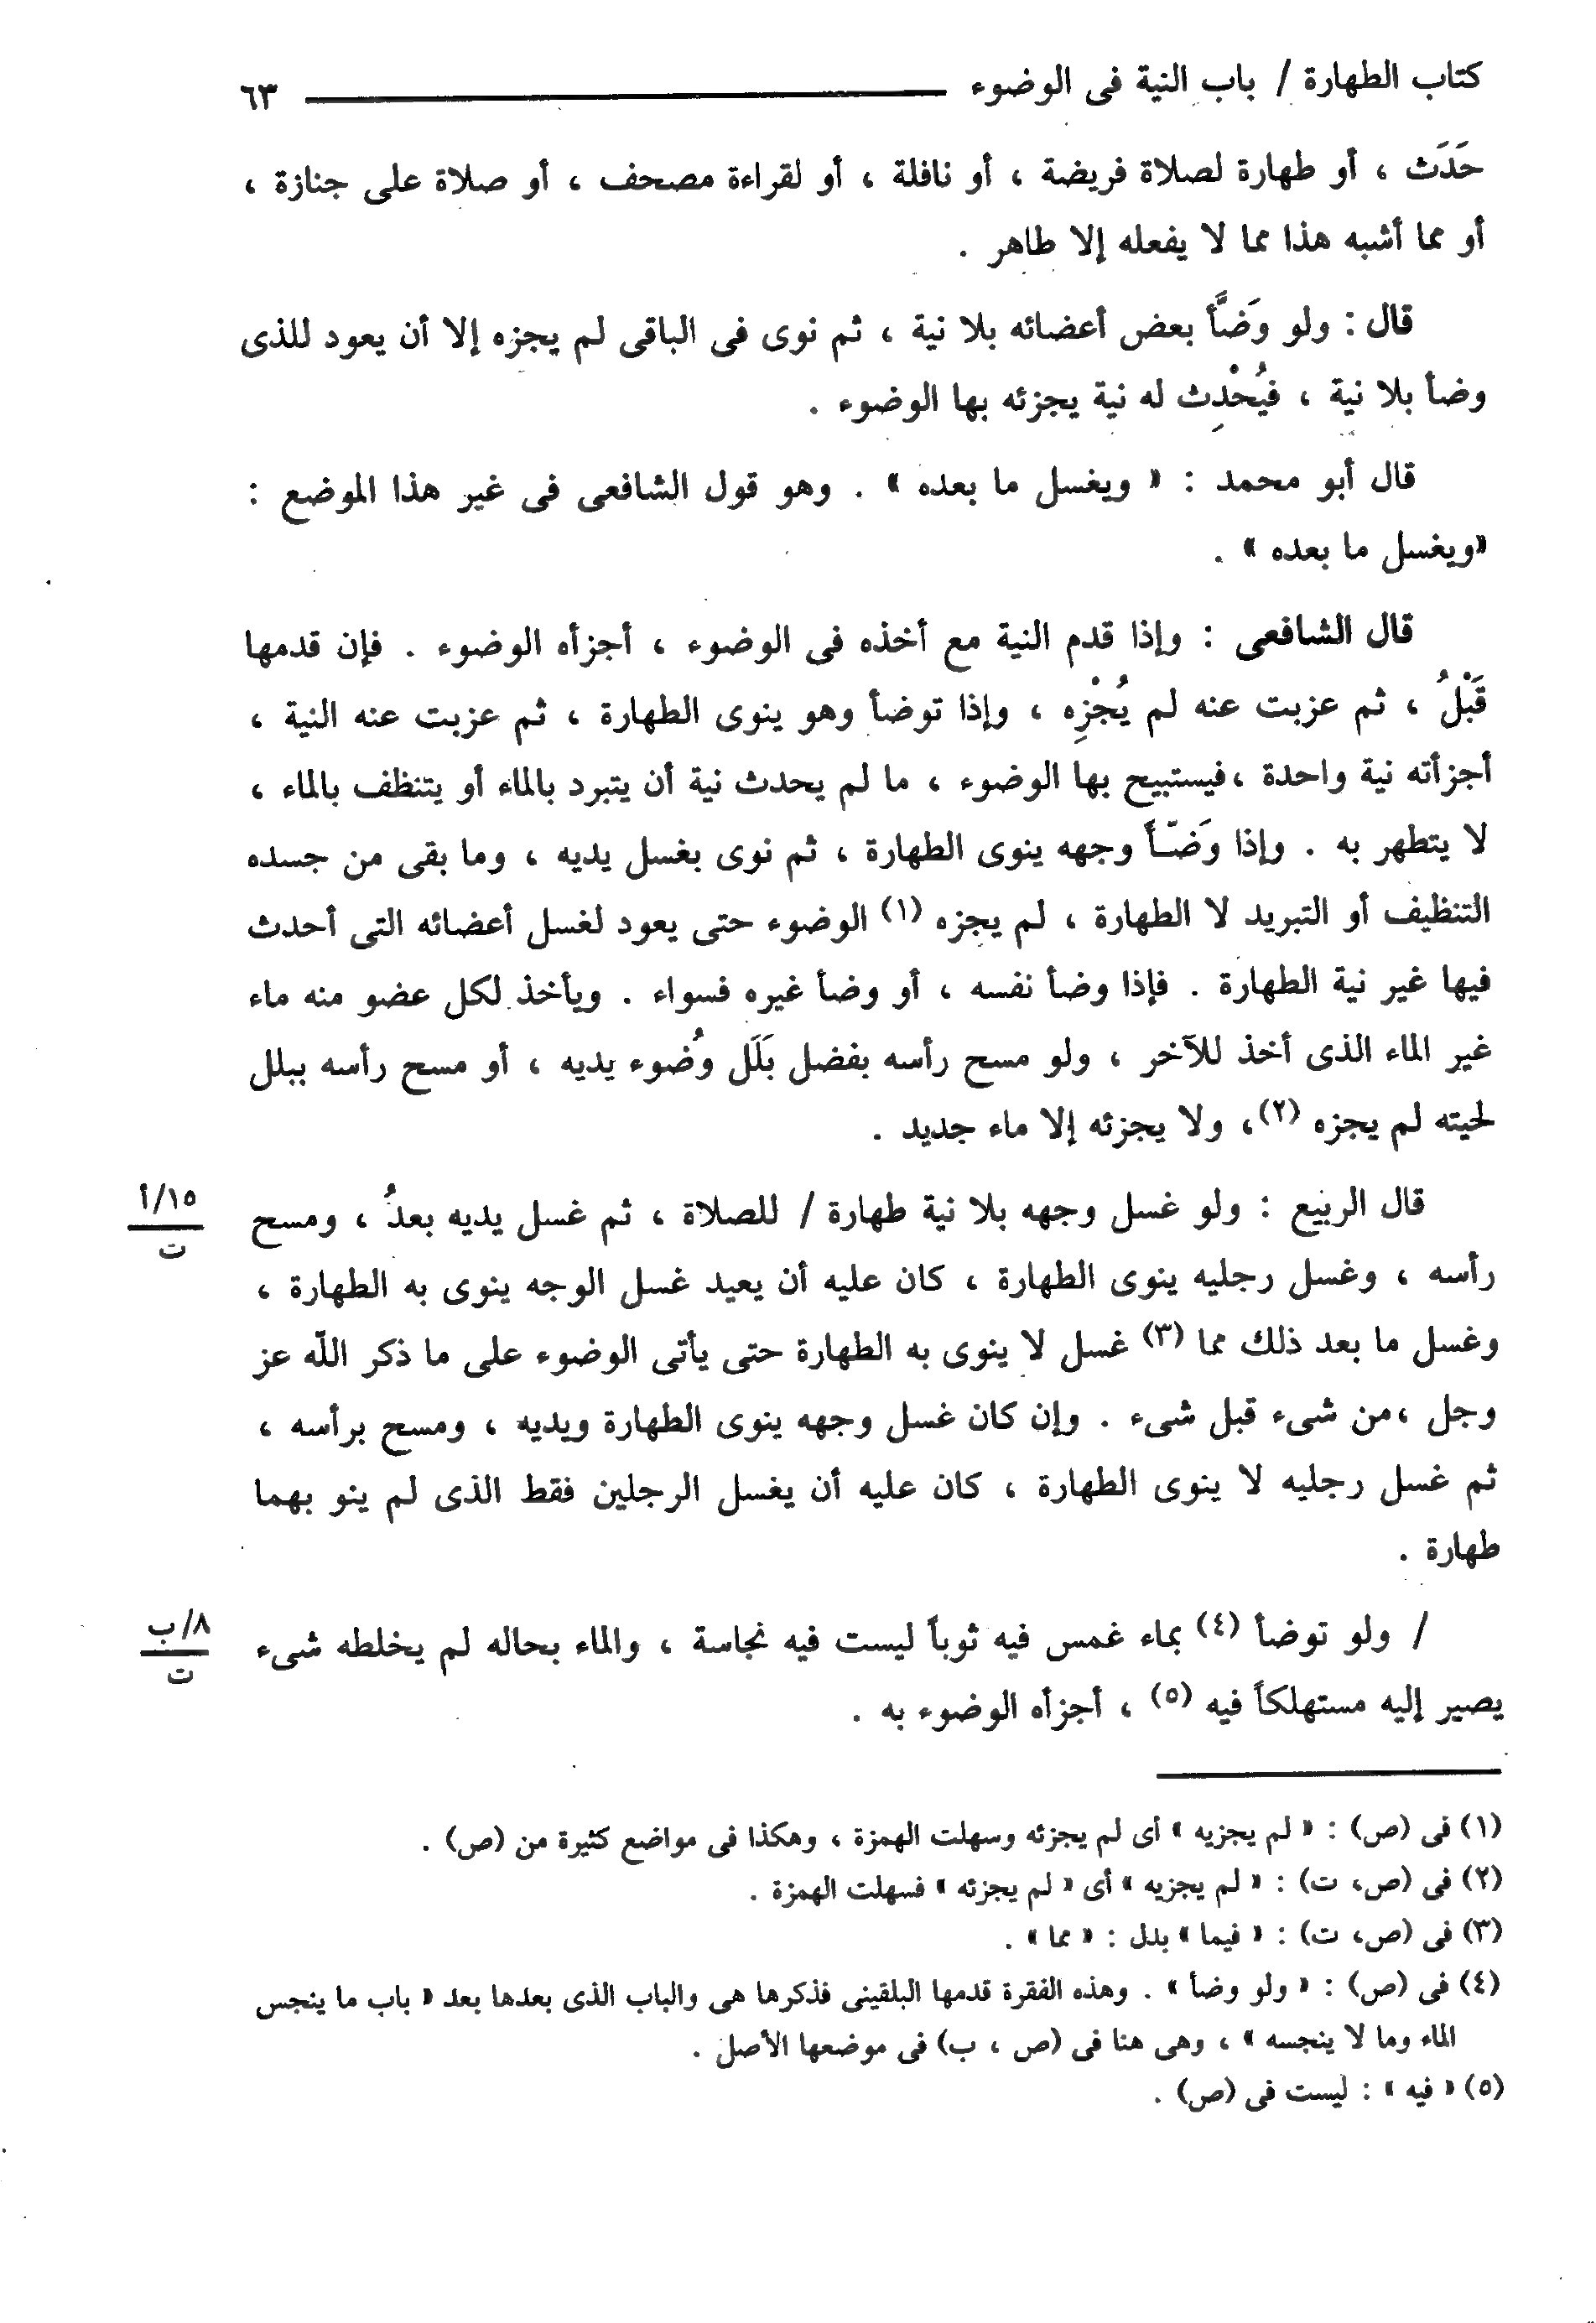 كتاب الطهارة / باب النية فى الوضوء ٦٣
حَدَث ، أو طهارة لصلاة فريضة ، أو نافلة ، أو لقراءة مصحف ، أو صلاة على جنازة ،
أو مما أشبه هذا مما لا يفعله إلا طاهر .
قال : ولو وَضَّأَ بعض أعضائه بلا نية ، ثم نوى فى الباقى لم يجزه إلا أن يعود للذى
وضأ بلا نية ، فيُحْدِث له نية يجزئه بها الوضوء .
قال أبو محمد : « ويغسل ما بعده » . وهو قول الشافعى فى غير هذا الموضع :
«ويغسل ما بعده » .
قال الشافعى : وإذا قدم النية مع أخذه فى الوضوء ، أجزأه الوضوء . فإن قدمها
قَبْلُ ، ثم عزبت عنه لم يُجْزِه ، وإذا توضأ وهو ينوى الطهارة ، ثم عزبت عنه النية ،
أجزأته نية واحدة ،فيستبيح بها الوضوء ، ما لم يحدث نية أن يتبرد بالماء أو يتنظف بالماء ،
لا يتطهر به . وإذا وَضّأَ وجهه ينوى الطهارة ، ثم نوى بغسل يديه ، وما بقى من جسده
التنظيف أو التبريد لا الطهارة ، لم يجزه (١) الوضوء حتى يعود لغسل أعضائه التى أحدث
فيها غير نية الطهارة . فإذا وضأ نفسه ، أو وضأ غيره فسواء . ويأخذ لكل عضو منه ماء
غير الماء الذى أخذ للآخر ، ولو مسح رأسه بفضل بَلَل وُضوء يديه ، أو مسح رأسه ببلل
لحيته لم يجزه (٢)، ولا يجزئه إلا ماء جديد .
قال الربيع : ولو غسل وجهه بلا نية طهارة / للصلاة ، ثم غسل يديه بعدُ ، ومسح
١٥/أ
ت
رأسه ، وغسل رجليه ينوى الطهارة ، كان عليه أن يعيد غسل الوجه ينوى به الطهارة ،
وغسل ما بعد ذلك مما (٣) غسل لا ينوى به الطهارة حتى يأتى الوضوء على ما ذكر اللّه عز
وجل ،من شىء قبل شىء . وإن كان غسل وجهه ينوى الطهارة ويديه ، ومسح برأسه ،
ثم غسل رجليه لا ينوى الطهارة ، كان عليه أن يغسل الرجلين فقط الذى لم ينو بهما
طهارة .
/ ولو توضأ (٤) بماء غمس فيه ثوباً ليست فيه نجاسة ، والماء بحاله لم يخلطه شىء
٨/ب
ت
يصير إليه مستهلكاً فيه (٥) ، أجزأه الوضوء به .
(١) فى (ص) : « لم يجزيه » أى لم يجزئه وسهلت الهمزة ، وهكذا فى مواضع كثيرة من (ص) .
(٢) فى (ص، ت) : « لم يجزيه » أى « لم يجزئه » فسهلت الهمزة .
(٣) فى (ص، ت) : « فيما » بدل : « مما » .
(٤) فى (ص) : « ولو وضأ » . وهذه الفقرة قدمها البلقينى فذكرها هى والباب الذى بعدها بعد « باب ما ينجس
الماء وما لا ينجسه » ، وهى هنا فى (ص ، ب) فى موضعها الأصل .
(٥) « فيه » : ليست فى (ص) .